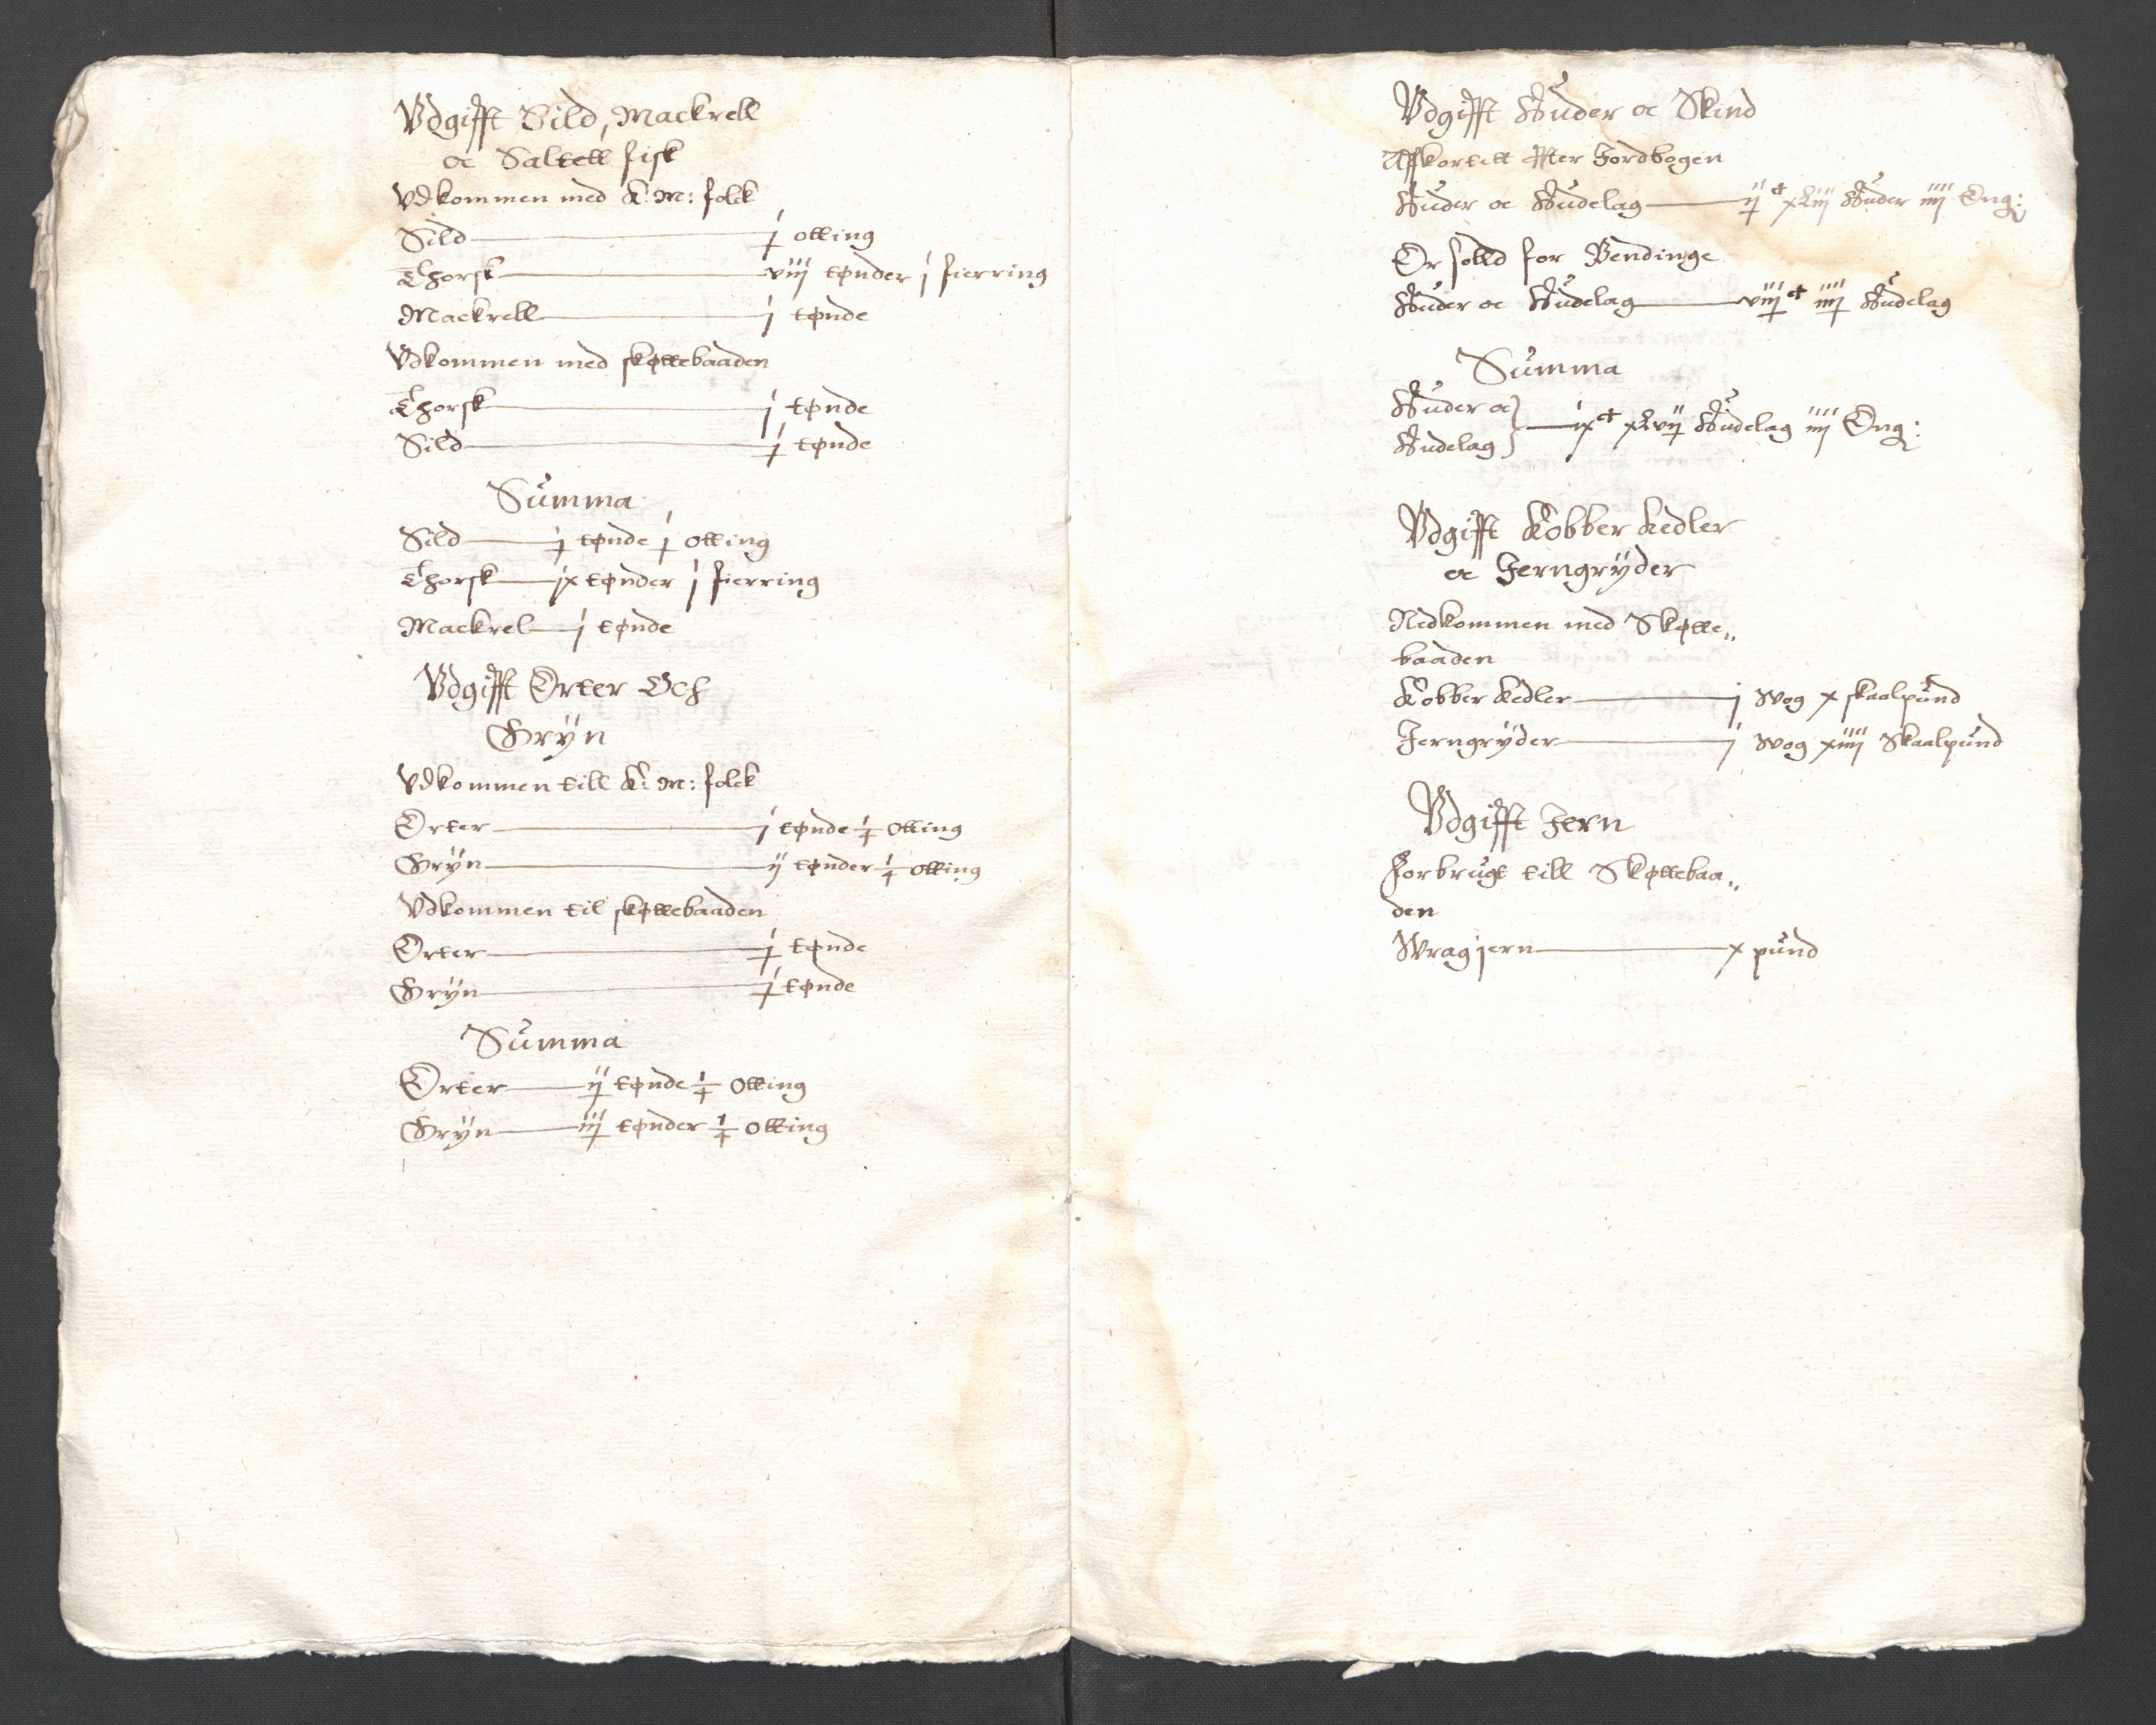 Vdgifft Sild, Mackrell
oc Saltett fisk
Vdkommen med K: M: folck
Sild — j otting
Thorsk — viij tønder j fierring
Mackrell — j tønde
Vdkommen med skøttebaaden
Thorsk — j tønde
Sild — j tønde
Summa
Sild — j tønde j otting
Thorsk — ix tønder j fierring
Mackrel — j tønde
Vdgifft Erter Och
Gryn
Vdkommen till K: M: folck
Erter — j tønde ½ otting
Gryn — ij tønder ½ otting
Vdkommen til skøttebaaden
Erter — j tønde
Gryn — j tønde
Summa
Erter — ij tønde ½ Otting
Gryn — iij tønder ½ otting
Vdgifft Huder oc Skind
Affkortett effter Jordbogen
Huder oc Hudelag — ij c xliij Huder iiij Eng:
Er solld for Pendinge
Huder oc Hudelag — viij c iiij Hudelag
Summa
Huder oc
Hudelag — ix c xlvij Hudelag iiij Eng:
Vdgifft Kobber Kedler
oc Jerngryder
Nedkommen med Skøtte„
baaden
Kobber Kedler — j Wog x skaalpund
Jerngryder — j Wog xiiij Skaalpund
Vdgifft Jern
Forbrugt till Skøttebaa„
den
Wragjern — x pund